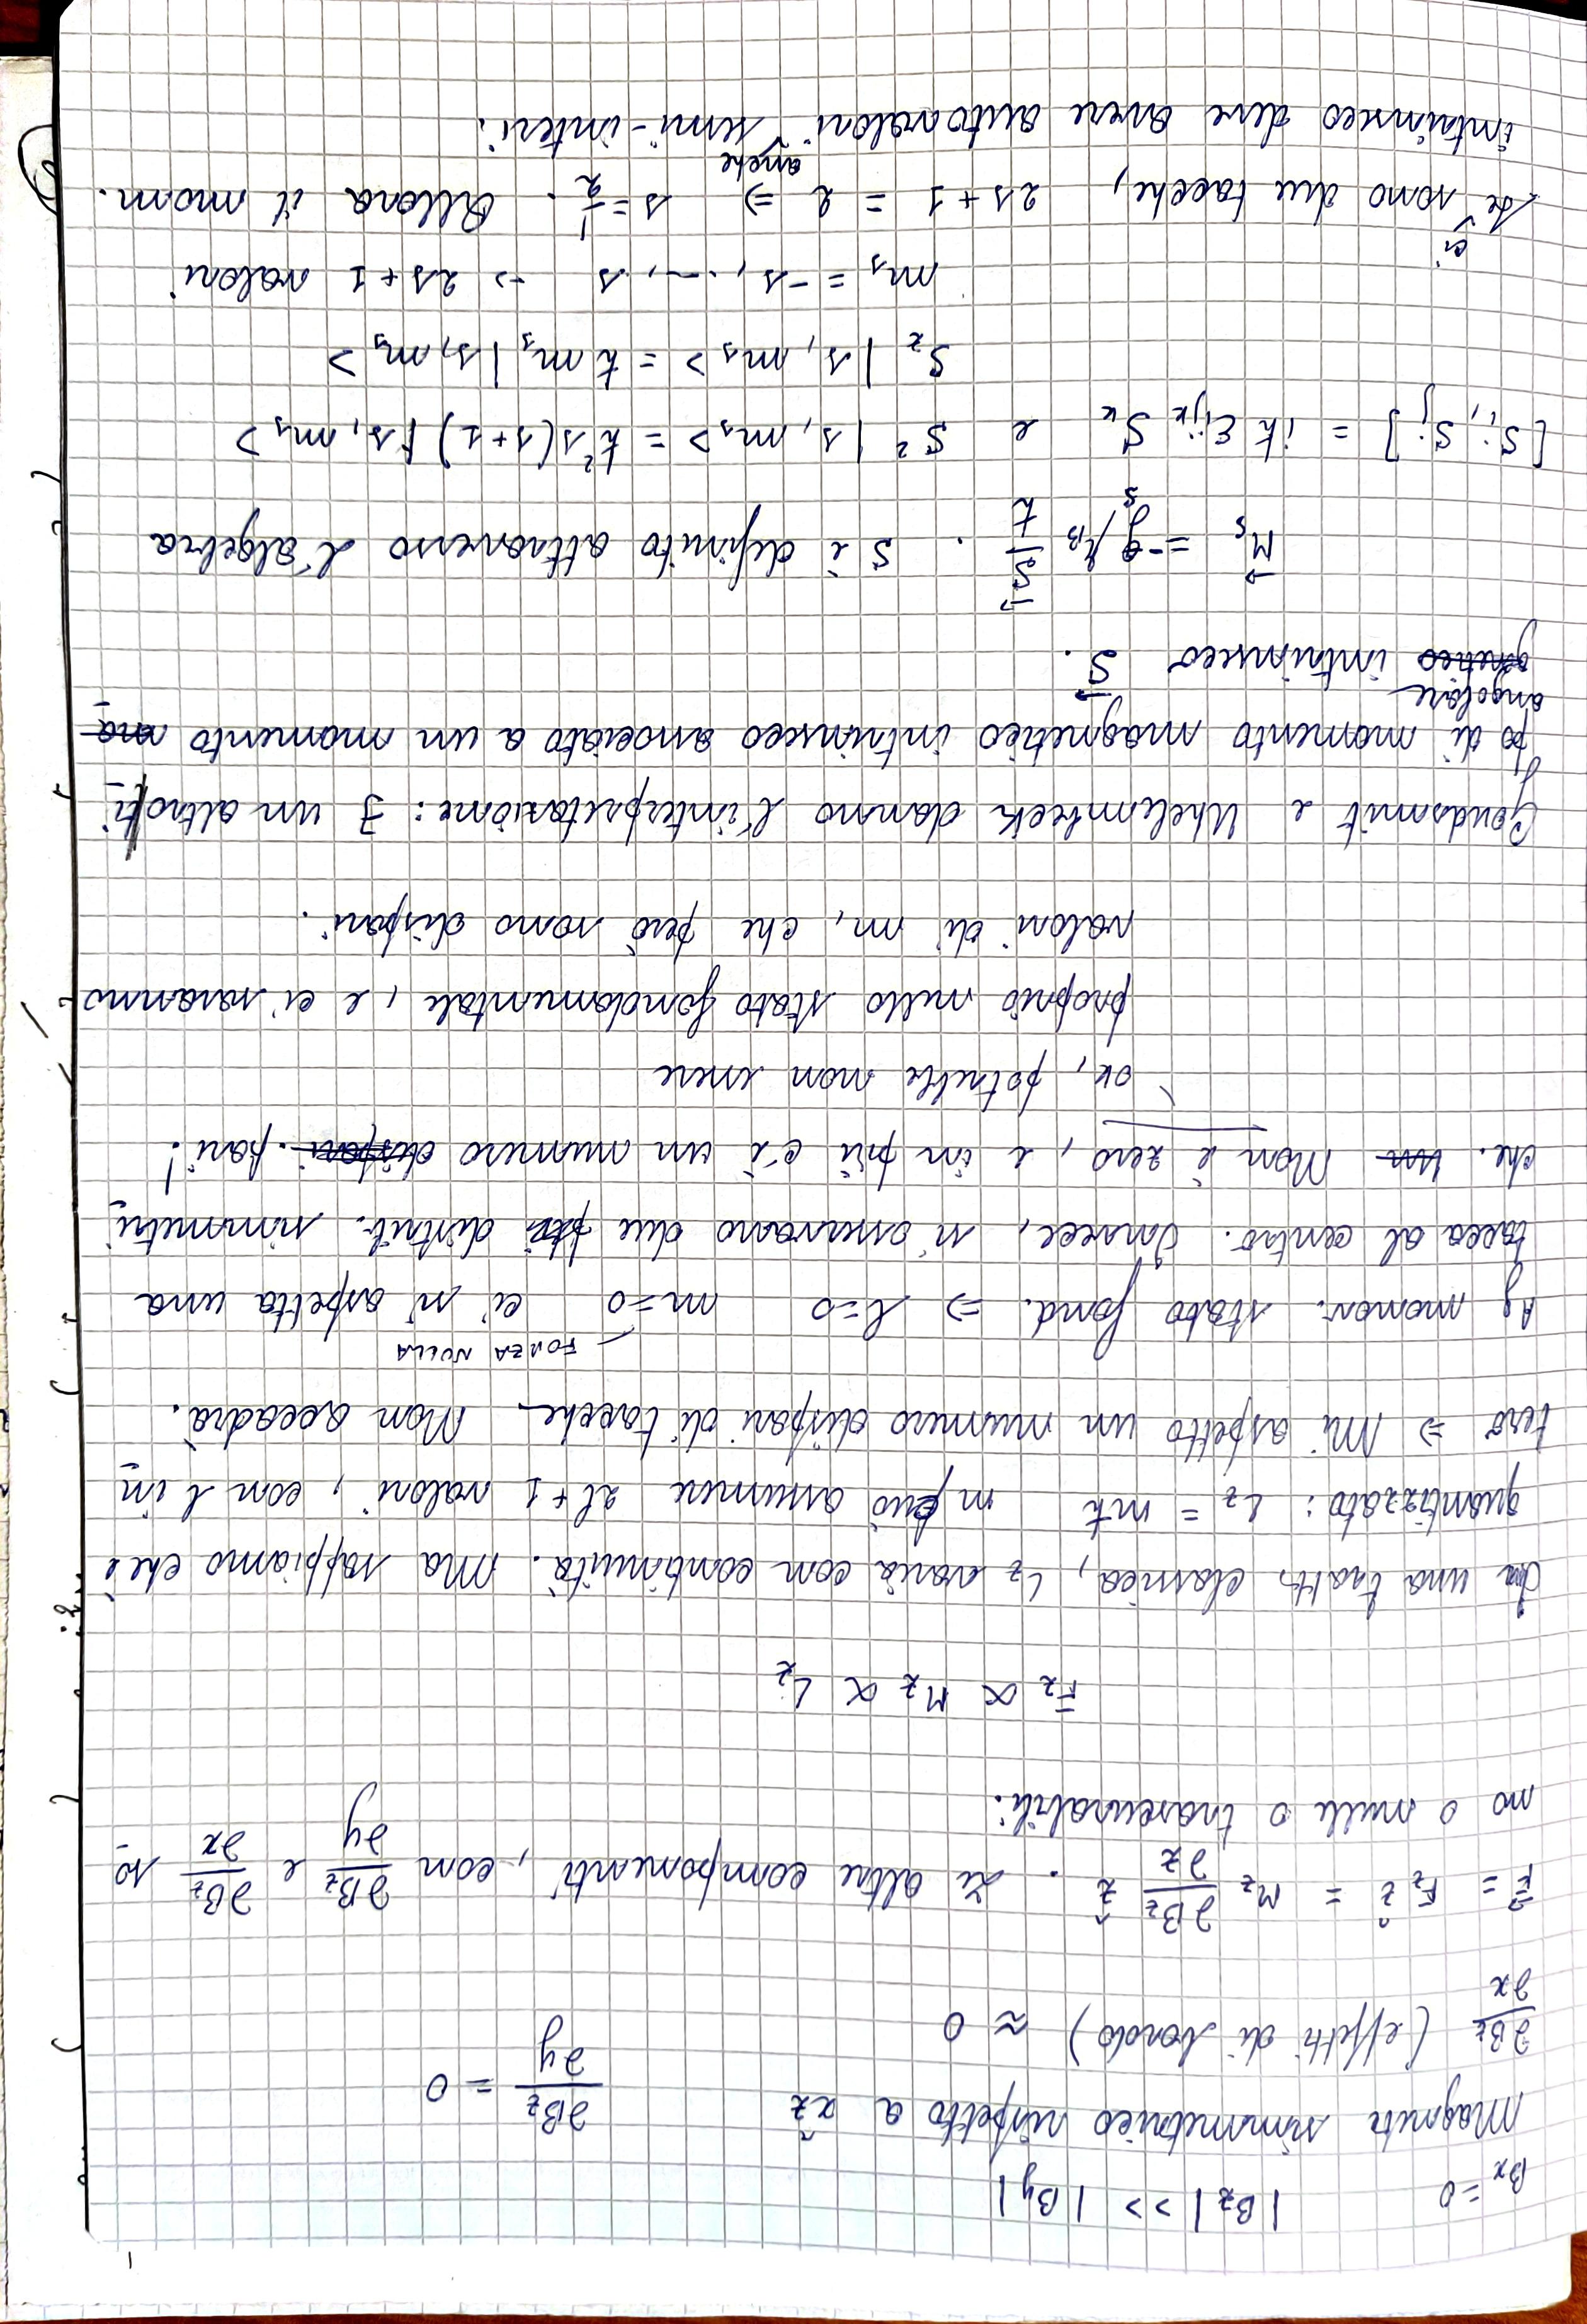 Bx = 0 |Bz| >> |By|
Magnete simmetrico rispetto a x̂z ∂Bz/∂y = 0
∂Bz/∂x (effetti di bordo) ≈ 0
F⃗ = Fz ẑ = Mz ∂Bz/∂z ẑ . Le altre componenti, con ∂Bz/∂y e ∂Bz/∂x so
no o nulle o trascurabili.
Fz ∝ Mz ∝ Lz
In una tratt. classica, Lz varia con continuità. Ma sappiamo che è
quantizzato: Lz = mħ m può assumere 2l+1 valori, con l in
tero ⇒ Mi aspetto un numero dispari di tacche. Non accadrà.
FORZA NULLA
Ag monov. stato fond. ⇒ l=0 m=0 ci si aspetta una
tacca al centro. Invece, si osservano due distrib. simmetri
che. Un Non è zero, e in più c'è un numero dispari. pari!
ok, potrebbe non essere
proprio nello stato fondamentale, e ci saranno
valori di m, che però sono dispari.
Goudsmit e Uhelembeck danno l'interpretazione: ∃ un altro ti
po di momento magnetico intrinseco associato a un momento ma
angolare
gnetico intrinseco S⃗.
M⃗s = -gs μB S⃗/ħ . S è definito attraverso l'algebra
[Si, Sj] = iħ εijk Sk e S² |s, ms> = ħ²s(s+1) |s, ms>
Sz |s, ms> = ħ ms |s, ms>
ms = -s, ..., s → 2s+1 valori
ci
Se sono due tacche, 2s+1 = 2 ⇒ s = 1/2 . Allora il mom.
anche
intrinseco deve avere autovalori semi-interi.